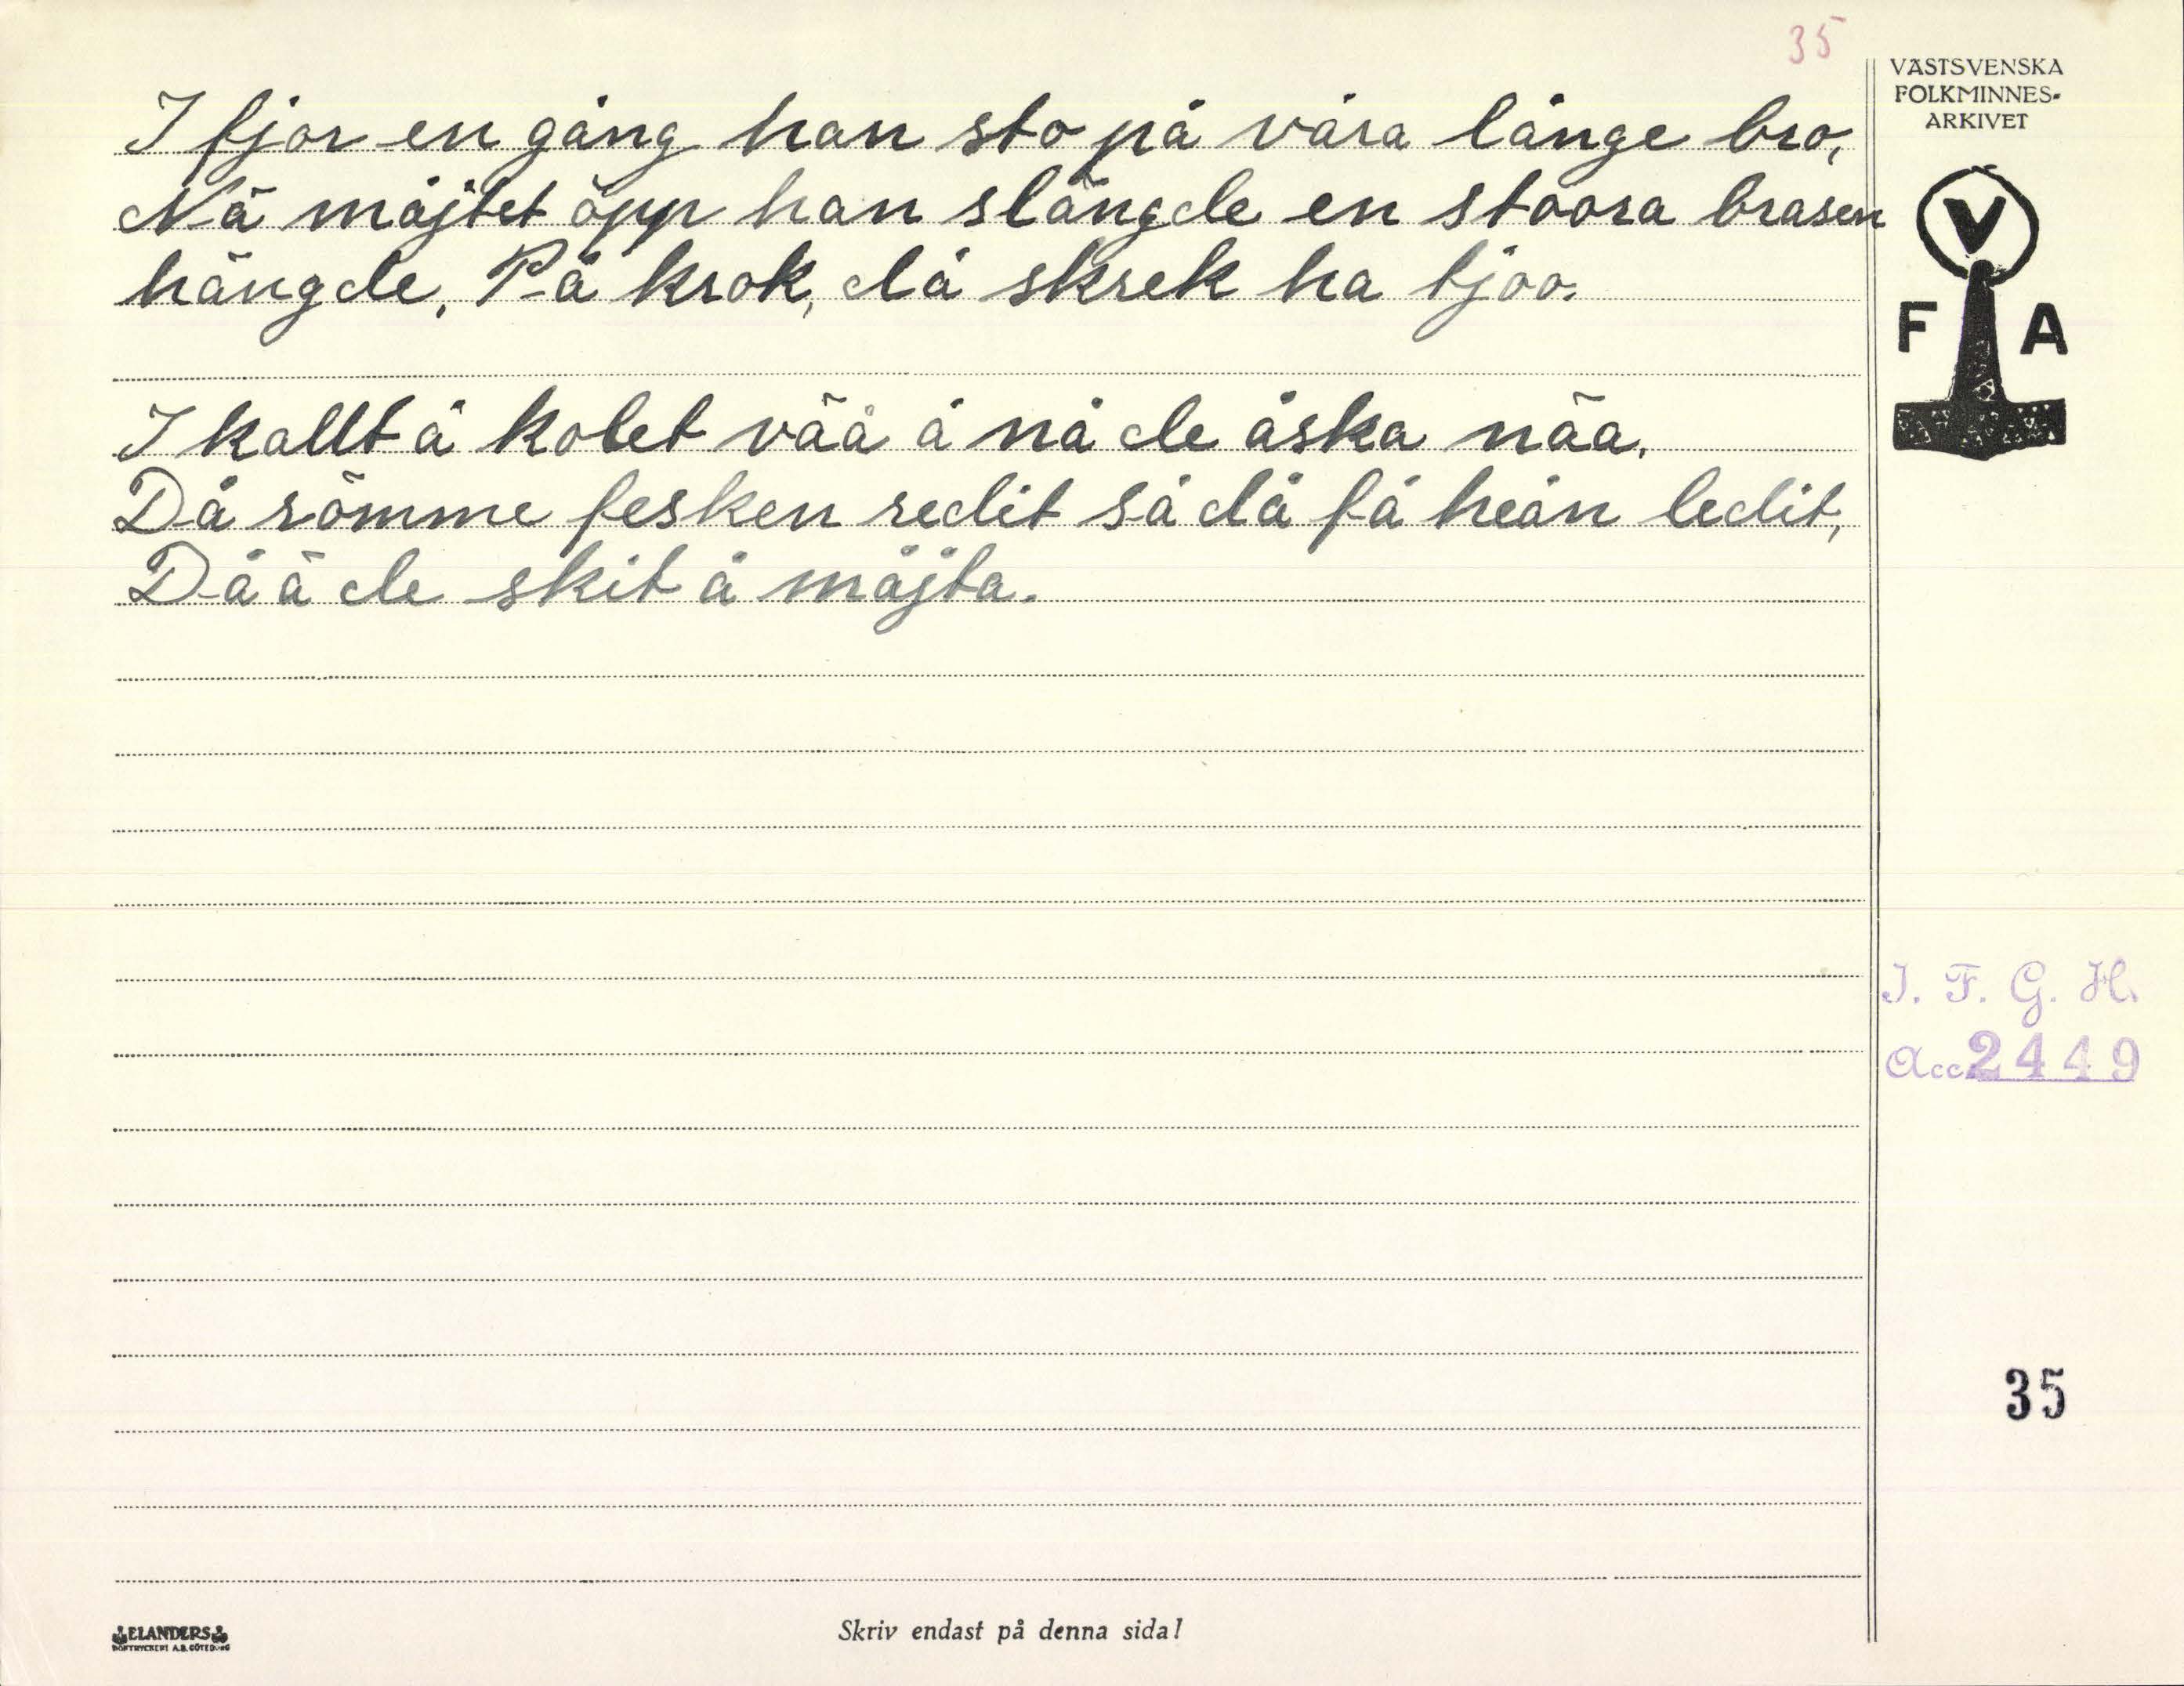 35
VÄSTSVENSKA
FOLKMINNES-
ARKIVET
I fjor en gång han sto på våra långe bro,
Nä måjtet öpp han slängde en stoora brasen
hängde, På krok, då skrek ha tjoo.
V
F A
I kallt å kolet väå å nå de åska nåa.
Då römme fesken redit så då få heån ledit,
Då ä de skit å måjta.
I. F. G. H.
Acc 2449
35
ELANDERS
BOKTRYCKERI A.B. GÖTEBORG
Skriv endast på denna sida!